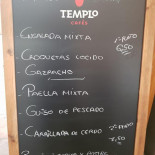 TEMPLO
CAFÉS
- ENSALADA MIXTA
- CROQUETAS COCIDO
- GAZPACHO
1º PLATO
6,50
- PAELLA MIXTA
- GUISO DE PESCADO
- CARRILLADA DE CERDO
2º PLATO
7,50